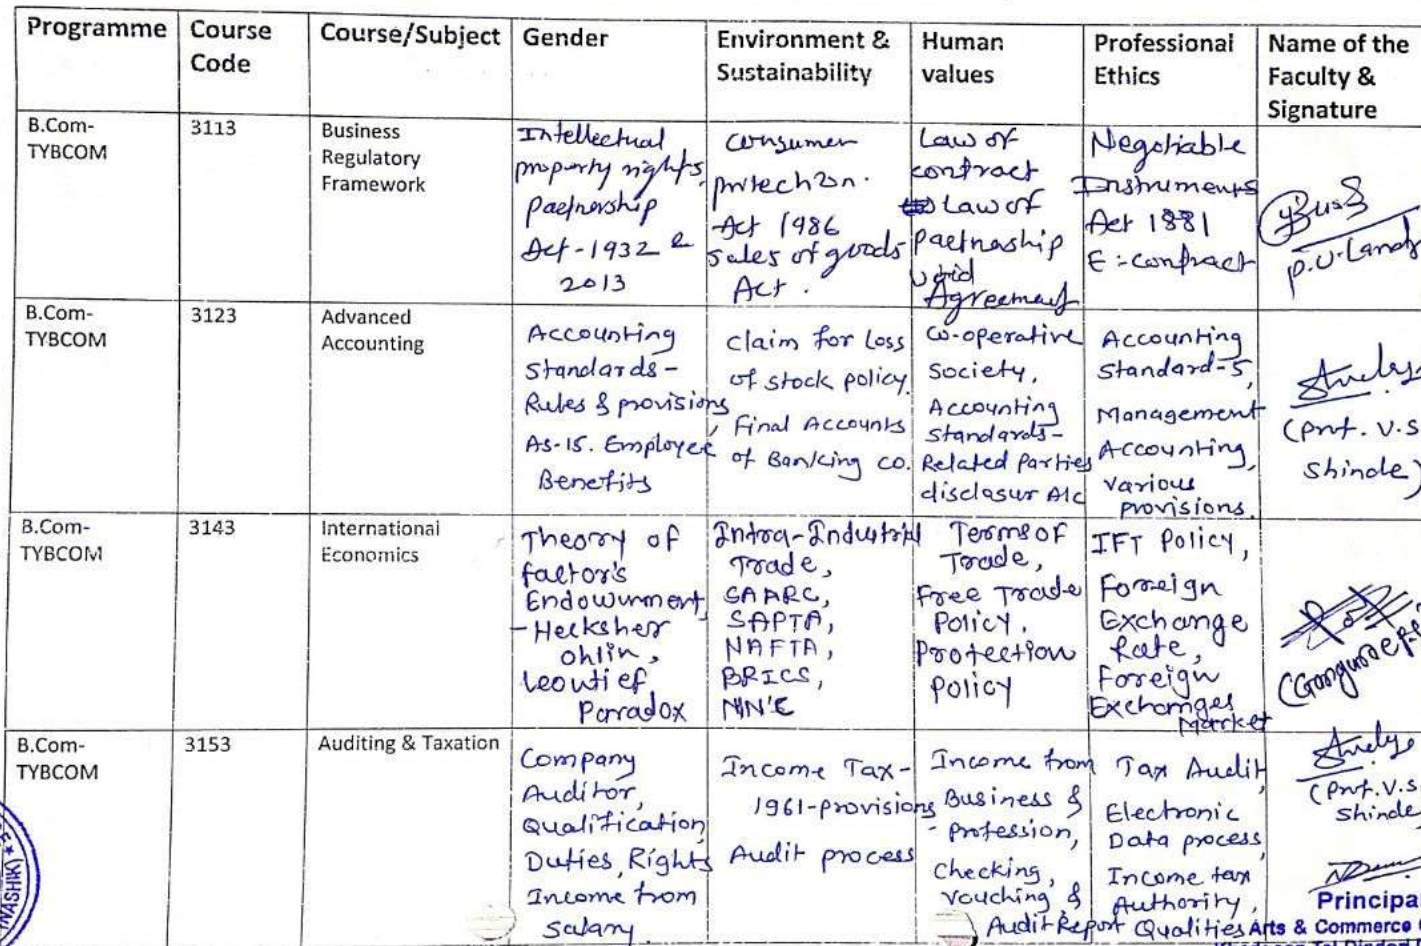 Programme
Course
Code
Course/Subject
Gender
Environment &
Sustainability
Human
values
Professional
Ethics
Name of the
Faculty &
Signature
B.Com-
TYBCOM
3113
Business
Regulatory
Framework
Intellectual
property rights,
Paetnership
Act-1932 &
2013
consumer
protection.
Act 1986
Sales of goods
Act.
Law of
contract
Law of
Paetnaship
void
Agreement
Negotiable
Instruments
Act 1881
E-contract
B.Com-
TYBCOM
3123
Advanced
Accounting
Accounting
Standards-
Rules & provisions,
AS-15. Employee
Benefits
claim for Loss
of stock policy
Final Accounts
of Banking co.
Co-operative
Society,
Accounting
Standards-
Related Parties
disclosur A/c
Accounting
Standard-5,
Management
Accounting,
various
provisions.
(Prof. V.S.
Shinde)
B.Com-
TYBCOM
3143
International
Economics
Theory of
factor's
Endowment,
-Hecksher
Ohlin,
Leoutief
Paradox
Intra-Industrial
Trade,
SAARC,
SAPTA,
NAFTA,
BRICS,
Terms of
Trade,
Free Trade
Policy,
Protection
Policy
IFT Policy,
Foreign
Exchange
Rate,
Foreign
Exchanges
Market
B.Com-
TYBCOM
3153
Auditing & Taxation
Company
Auditor,
Qualification,
Duties, Rights
Income from
Salary
Income Tax-
1961-provisions
Audit process
Income from
Business &
profession,
Checking,
Vouching &
Audit Report
Tax Audit,
Electronic
Data process,
Income tax
Authority,
Qualities
(Prof. V.S.
Shinde
Principal
Arts & Commerce
(NASHIK) *